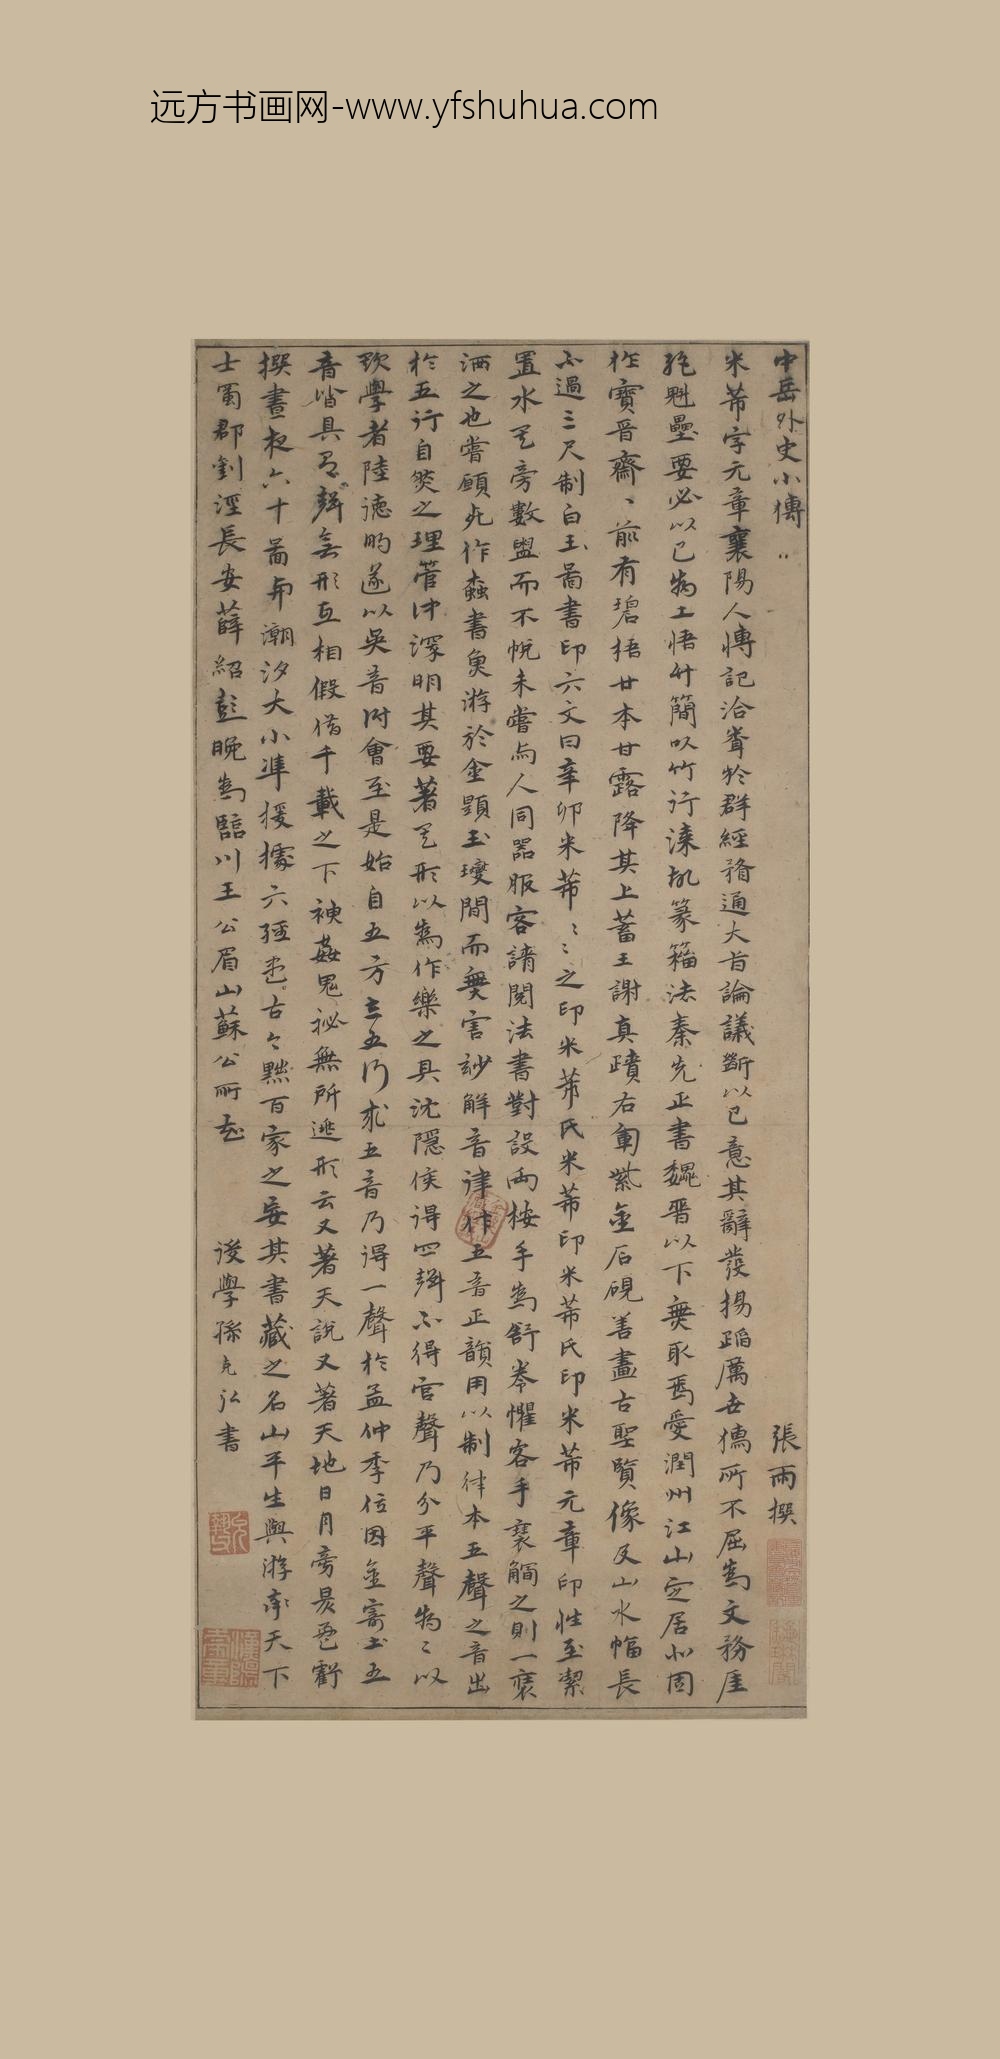 远方书画网-www.yfshuhua.com
中岳外史小傳 張雨撰
米芾字元章襄陽人博記洽聞於群經務通大旨論議斷以己意其辭發揚蹈厲世儒所不屈為文務崖
絕魁壘要必以己為工悟竹簡以竹行漆故篆籀法秦先正書魏晋以下無取焉愛潤州江山定居北固
作寶晋齋〻前有碧梧廿本甘露降其上蓄王謝真蹟右軍紫金石硯善畫古聖賢像及山水幅長
不過三尺制白玉啚書印六文曰辛卯米芾〻〻之印米芾氏米芾印米芾氏印米芾元章印性至潔
置水其旁數盥而不帨未嘗与人同器服客請閱法書對設兩桉手為舒卷懼客手袤觸之則一袤
洒之也嘗願死作蠹書魚游於金題玉躞間而無害妙解音律作五音正韻用以制律本五聲之音出
於五行自然之理管仲深明其要著其形以為作樂之具沈隱侯得四聲不得宫聲乃分平聲為二以
欺學者陸德明遂以吳音附會至是始自五方立五行求五音乃得一聲於孟仲季位因金寄土五
音皆具 聲無形互相假借千載之下神姦鬼秘無所逃形云又著天說又著天地日月旁晃
撰晝夜六十啚与潮汐大小準援據六經 古今黜百家之妄其書藏之名山平生與游 天下
士蜀郡劉涇長安薛紹彭晚為臨川王公眉山蘇公所 後學孫克弘書